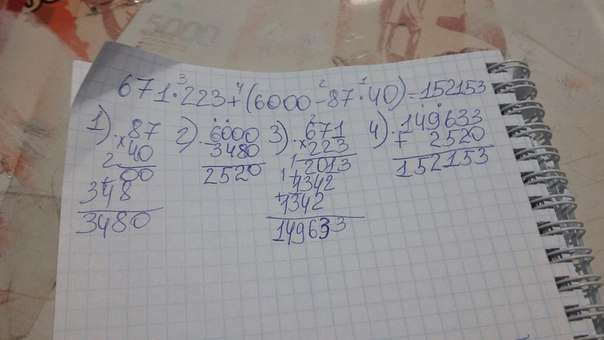 671·223+(6000-87·40)=152153
3 4 2 1
1) 87
×40
00
348
3480
2) 6000
3480
2520
3) 671
×223
2013
1342
+1342
149633
4) 149633
+ 2520
152153